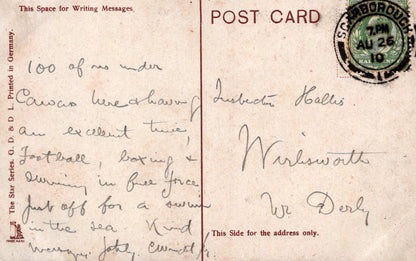 This Space for Writing Messages.
POST CARD
SCARBOROUGH
7.PM
AU 26
10
The Star Series. G. D. & D L. Printed in Germany.
100 of us under
Canvas here & having
an excellent time,
Football, boxing &
swimming in full force
Just off for a swim
in the sea. Kind
Inspector Hallis
Wirksworth
Nr Derby
This Side for the address only.